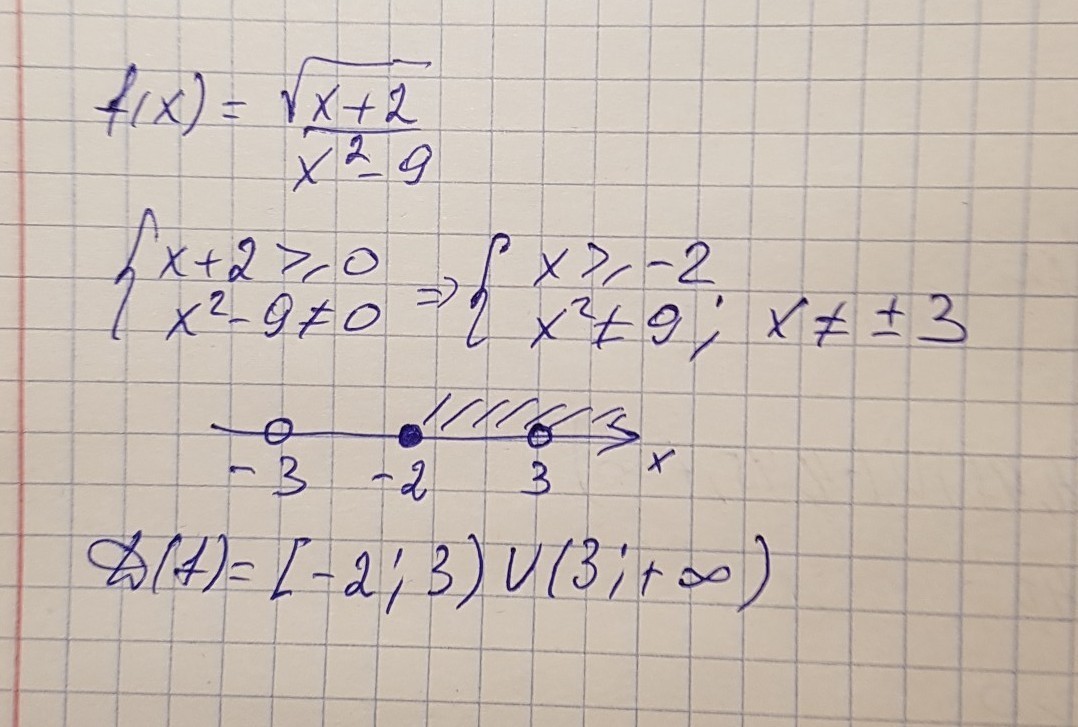 f(x) = √(x+2) / (x² - 9)
{ x+2 ≥ 0 ⇒ { x ≥ -2
x² - 9 ≠ 0 x² ≠ 9; x ≠ ± 3
-3 -2 3 x
D(f) = [-2; 3) ∪ (3; +∞)